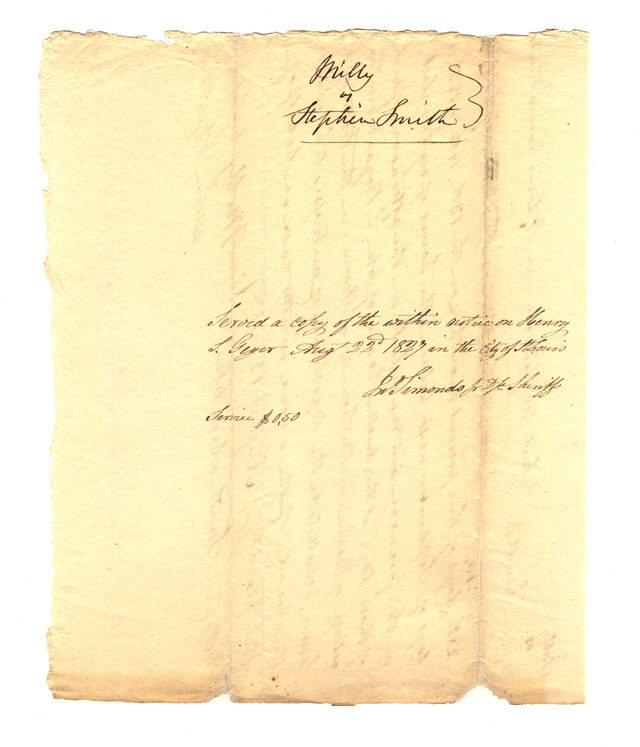 Milly
vs
Stephen Smith
Served a copy of the within notice on Henry
S. Geyer Aug 22d 1827 in the City of St Louis
Jno Simonds jr D. Sheriff
Service $0.50